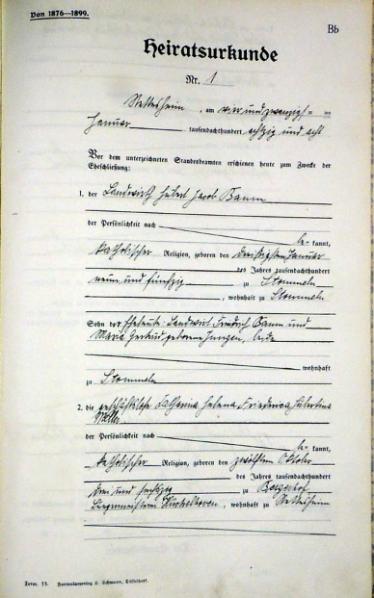 Von 1876—1899.
Bb
Heiratsurkunde
Nr. 1
Nettesheim, am vier und zwanzigsten
Januar tausendachthundert achtzig und acht
Vor dem unterzeichneten Standesbeamten erschienen heute zum Zwecke der
Eheschließung:
1. der Landwirth Hubert Jacob Baum
der Persönlichkeit nach
be kannt,
katholischer Religion, geboren den dreißigsten Januar
des Jahres tausendachthundert
neun und fünfzig zu Stommeln
, wohnhaft zu Stommeln
Sohn der Eheleute Landwirt Friedrich Baum und
Maria Gertrud geborene Jungen, beide
wohnhaft
zu Stommeln
2. die geschäftslose Catharina Helena Friederica Hubertina
der Persönlichkeit nach
be kannt,
katholischer Religion, geboren den zwölften Oktober
des Jahres tausendachthundert
drei und sechzig zu
Bürgermeisterei, wohnhaft zu Nettesheim